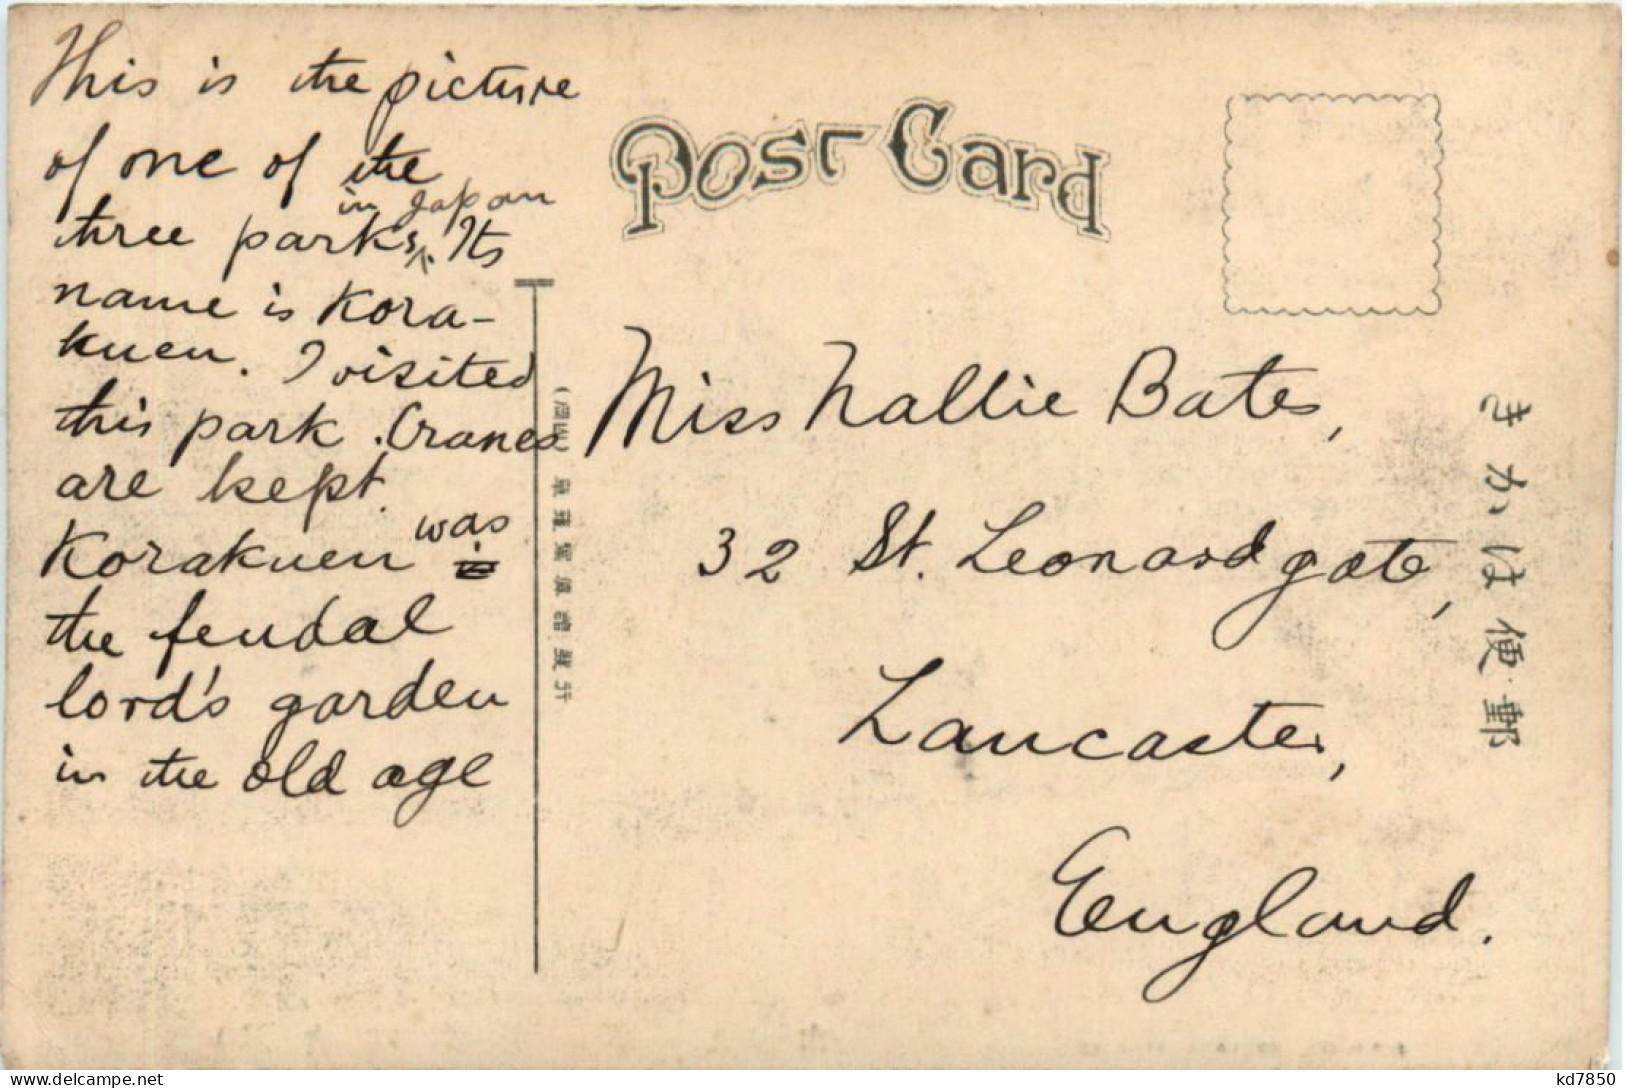 This is the picture
of one of the
three parks in Japan. Its
name is Kora-
kuen. I visited
this park. Cranes
are kept.
Korakuen was
the feudal
lord's garden
in the old age
Post Card
Miss Nallie Bates,
32 St. Leonardgate,
Lancaster,
England.
きかは便郵
kd7850